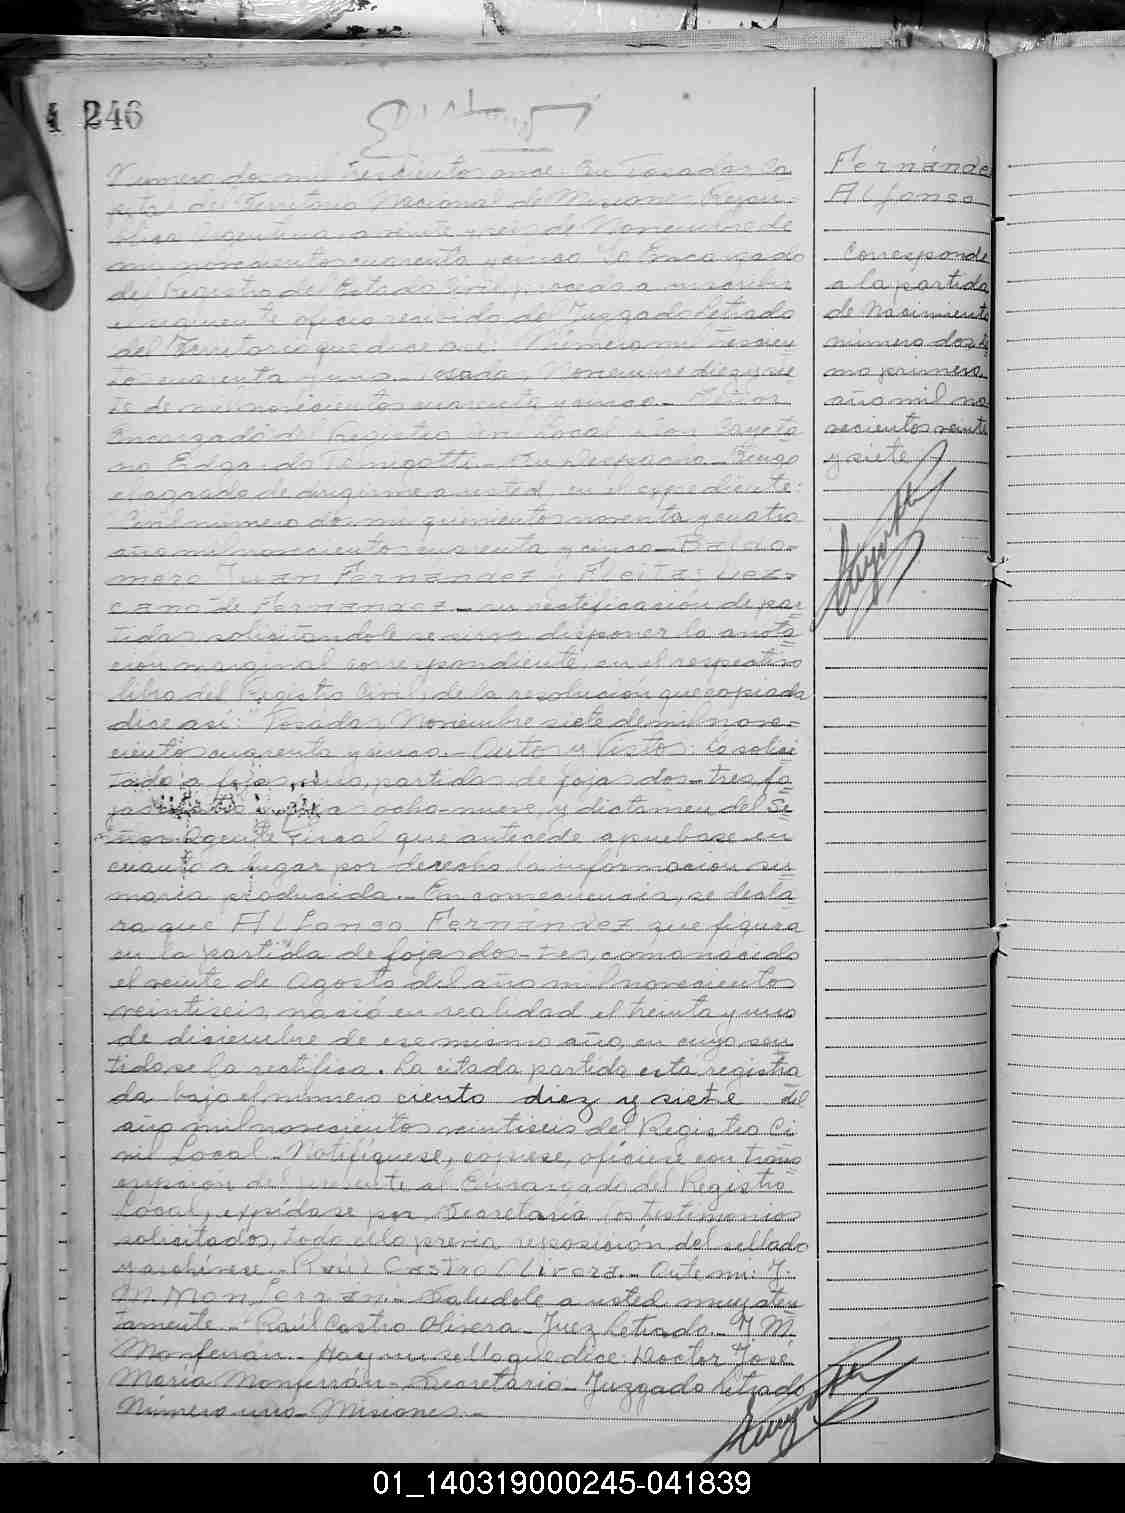 246
Número dos mil trescientos once. En Posadas Ca
pital del Territorio Nacional de Misiones, Repu
blica Argentina, a veinte y seis de Noviembre de
mil novecientos cuarenta y cinco. Yo Encargado
del Registro del Estado Civil, procedo a inscribir
el siguiente oficio recibido del Juzgado Letrado
del Territorio que dice así: Número mil trescien
tos cuarenta y uno. Posadas Noviembre diez y sie
te de mil novecientos cuarenta y cinco. Al Señor
Encargado del Registro Civil local
Edgardo En su Despacho. Tengo
el agrado de dirigirme a usted, en el expediente:
Civil número dos mil quinientos noventa y cuatro
año mil novecientos cuarenta y cinco - Baldo-
mero Juan Fernández y
cano de Fernandez - su rectificación de par
tidas solicitándole se sirva disponer la anota
cion marginal correspondiente, en el respectivo
libro del Registro Civil, de la resolución que copiada
dice así: Posadas, Noviembre siete de mil nove-
cientos cuarenta y cinco. - Autos y Vistos: lo solici
tado a fojas partidas de fojas dos - tres, fo
jas ocho - nueve, y dictamen del Se
ñor Agente Fiscal que antecede apruebase en
cuanto a lugar por derecho la informacion su
maria producida. - En consecuencia, se decla
ra que Alfonso Fernández que figura
en la partida de fojas dos - tres, como nacido
el veinte de Agosto del año mil novecientos
veintiseis, nació en realidad el treinta y uno
de diciembre de ese mismo año, en cuyo sen
tido se la rectifica. La citada partida esta registra
da bajo el número ciento diez y siete del
año mil novecientos veintiseis del Registro Ci
vil Local - Notifíquese, copiese, ofíciese con trans
cripción del presente al Encargado del Registro
Local, expídase por Secretaría los testimonios
solicitados, todo ello previa reposición del sellado
y archivese. - Raúl Castro Olivera. - Ante mi: J.
M. Monferrán. - Saludole a usted muy aten
tamente. - Raúl Castro Olivera - Juez Letrado. - J. M.
Monferrán. - Hay un sello que dice: Doctor José
María Monferrán - Secretario - Juzgado Letrado
Número uno - Misiones. -
Fernández
Alfonso
Corresponde
a la partida
de Nacimiento
número
primero,
año mil no
vecientos veinte
y siete
01_140319000245-041839